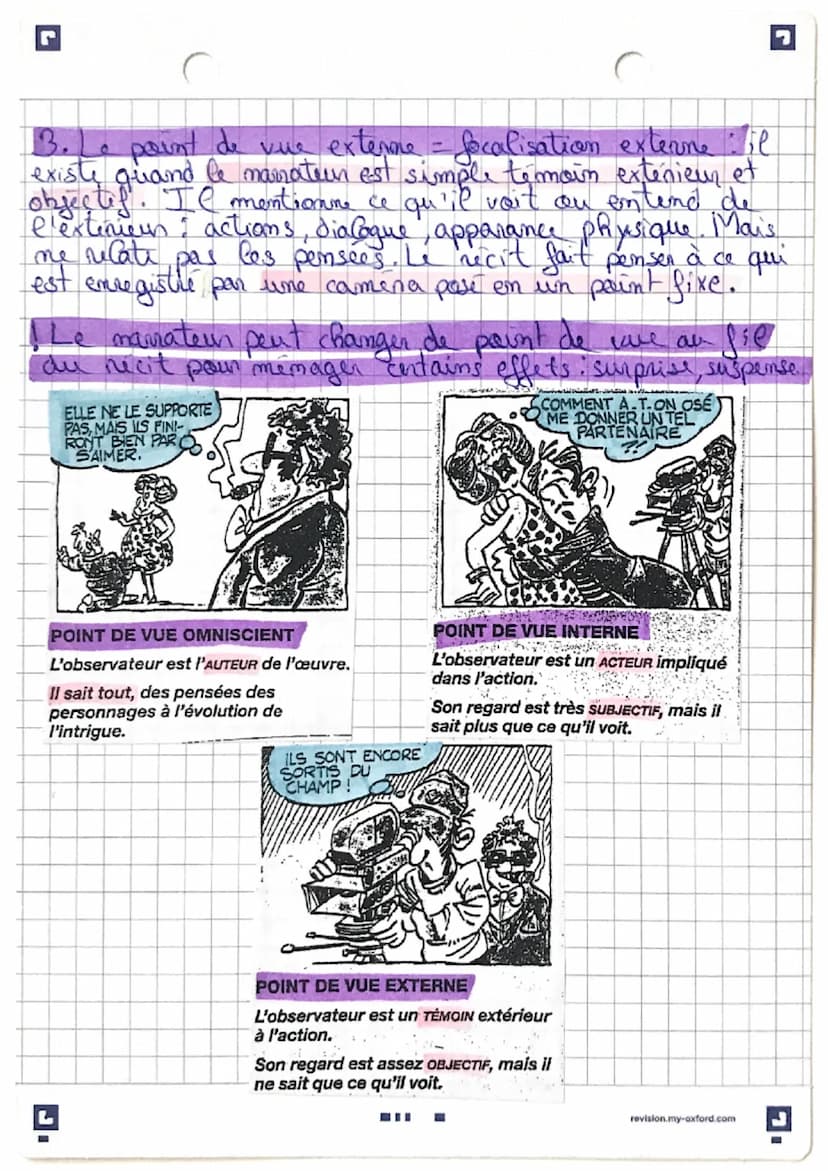 3. Le point de vue externe = focalisation externe : il
existe quand le narrateur est simple témoin extérieur et
objectif. Il mentionne ce qu'il voit ou entend de
l'extérieur : actions, dialogue, apparance physique. Mais
ne relate pas les pensées. Le récit fait penser à ce qui
est enregistré par une caméra posé en un point fixe.
! Le narrateur peut changer de point de vue au fil
du récit pour ménager certains effets : surprise, suspense
ELLE NE LE SUPPORTE
PAS, MAIS ILS FINI-
RONT BIEN PAR
S'AIMER.
POINT DE VUE OMNISCIENT
L'observateur est l'AUTEUR de l'œuvre.
Il sait tout, des pensées des
personnages à l'évolution de
l'intrigue.
COMMENT A.T.ON OSÉ
ME DONNER UN TEL
PARTENAIRE
?!
POINT DE VUE INTERNE
L'observateur est un ACTEUR impliqué
dans l'action.
Son regard est très SUBJECTIF, mais il
sait plus que ce qu'il voit.
ILS SONT ENCORE
SORTIS DU
CHAMP !
POINT DE VUE EXTERNE
L'observateur est un TÉMOIN extérieur
à l'action.
Son regard est assez OBJECTIF, mais il
ne sait que ce qu'il voit.
revision.my-oxford.com